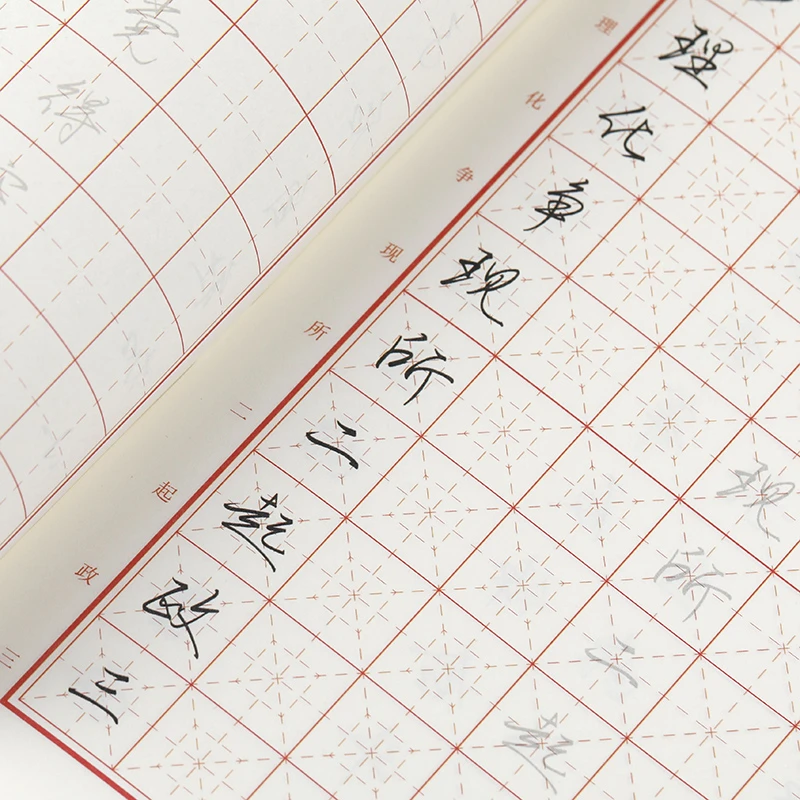 理 化 争 现 所 二 起 政 三
理 化 争 现 所 二 起 政 三
现 所 二 起
得